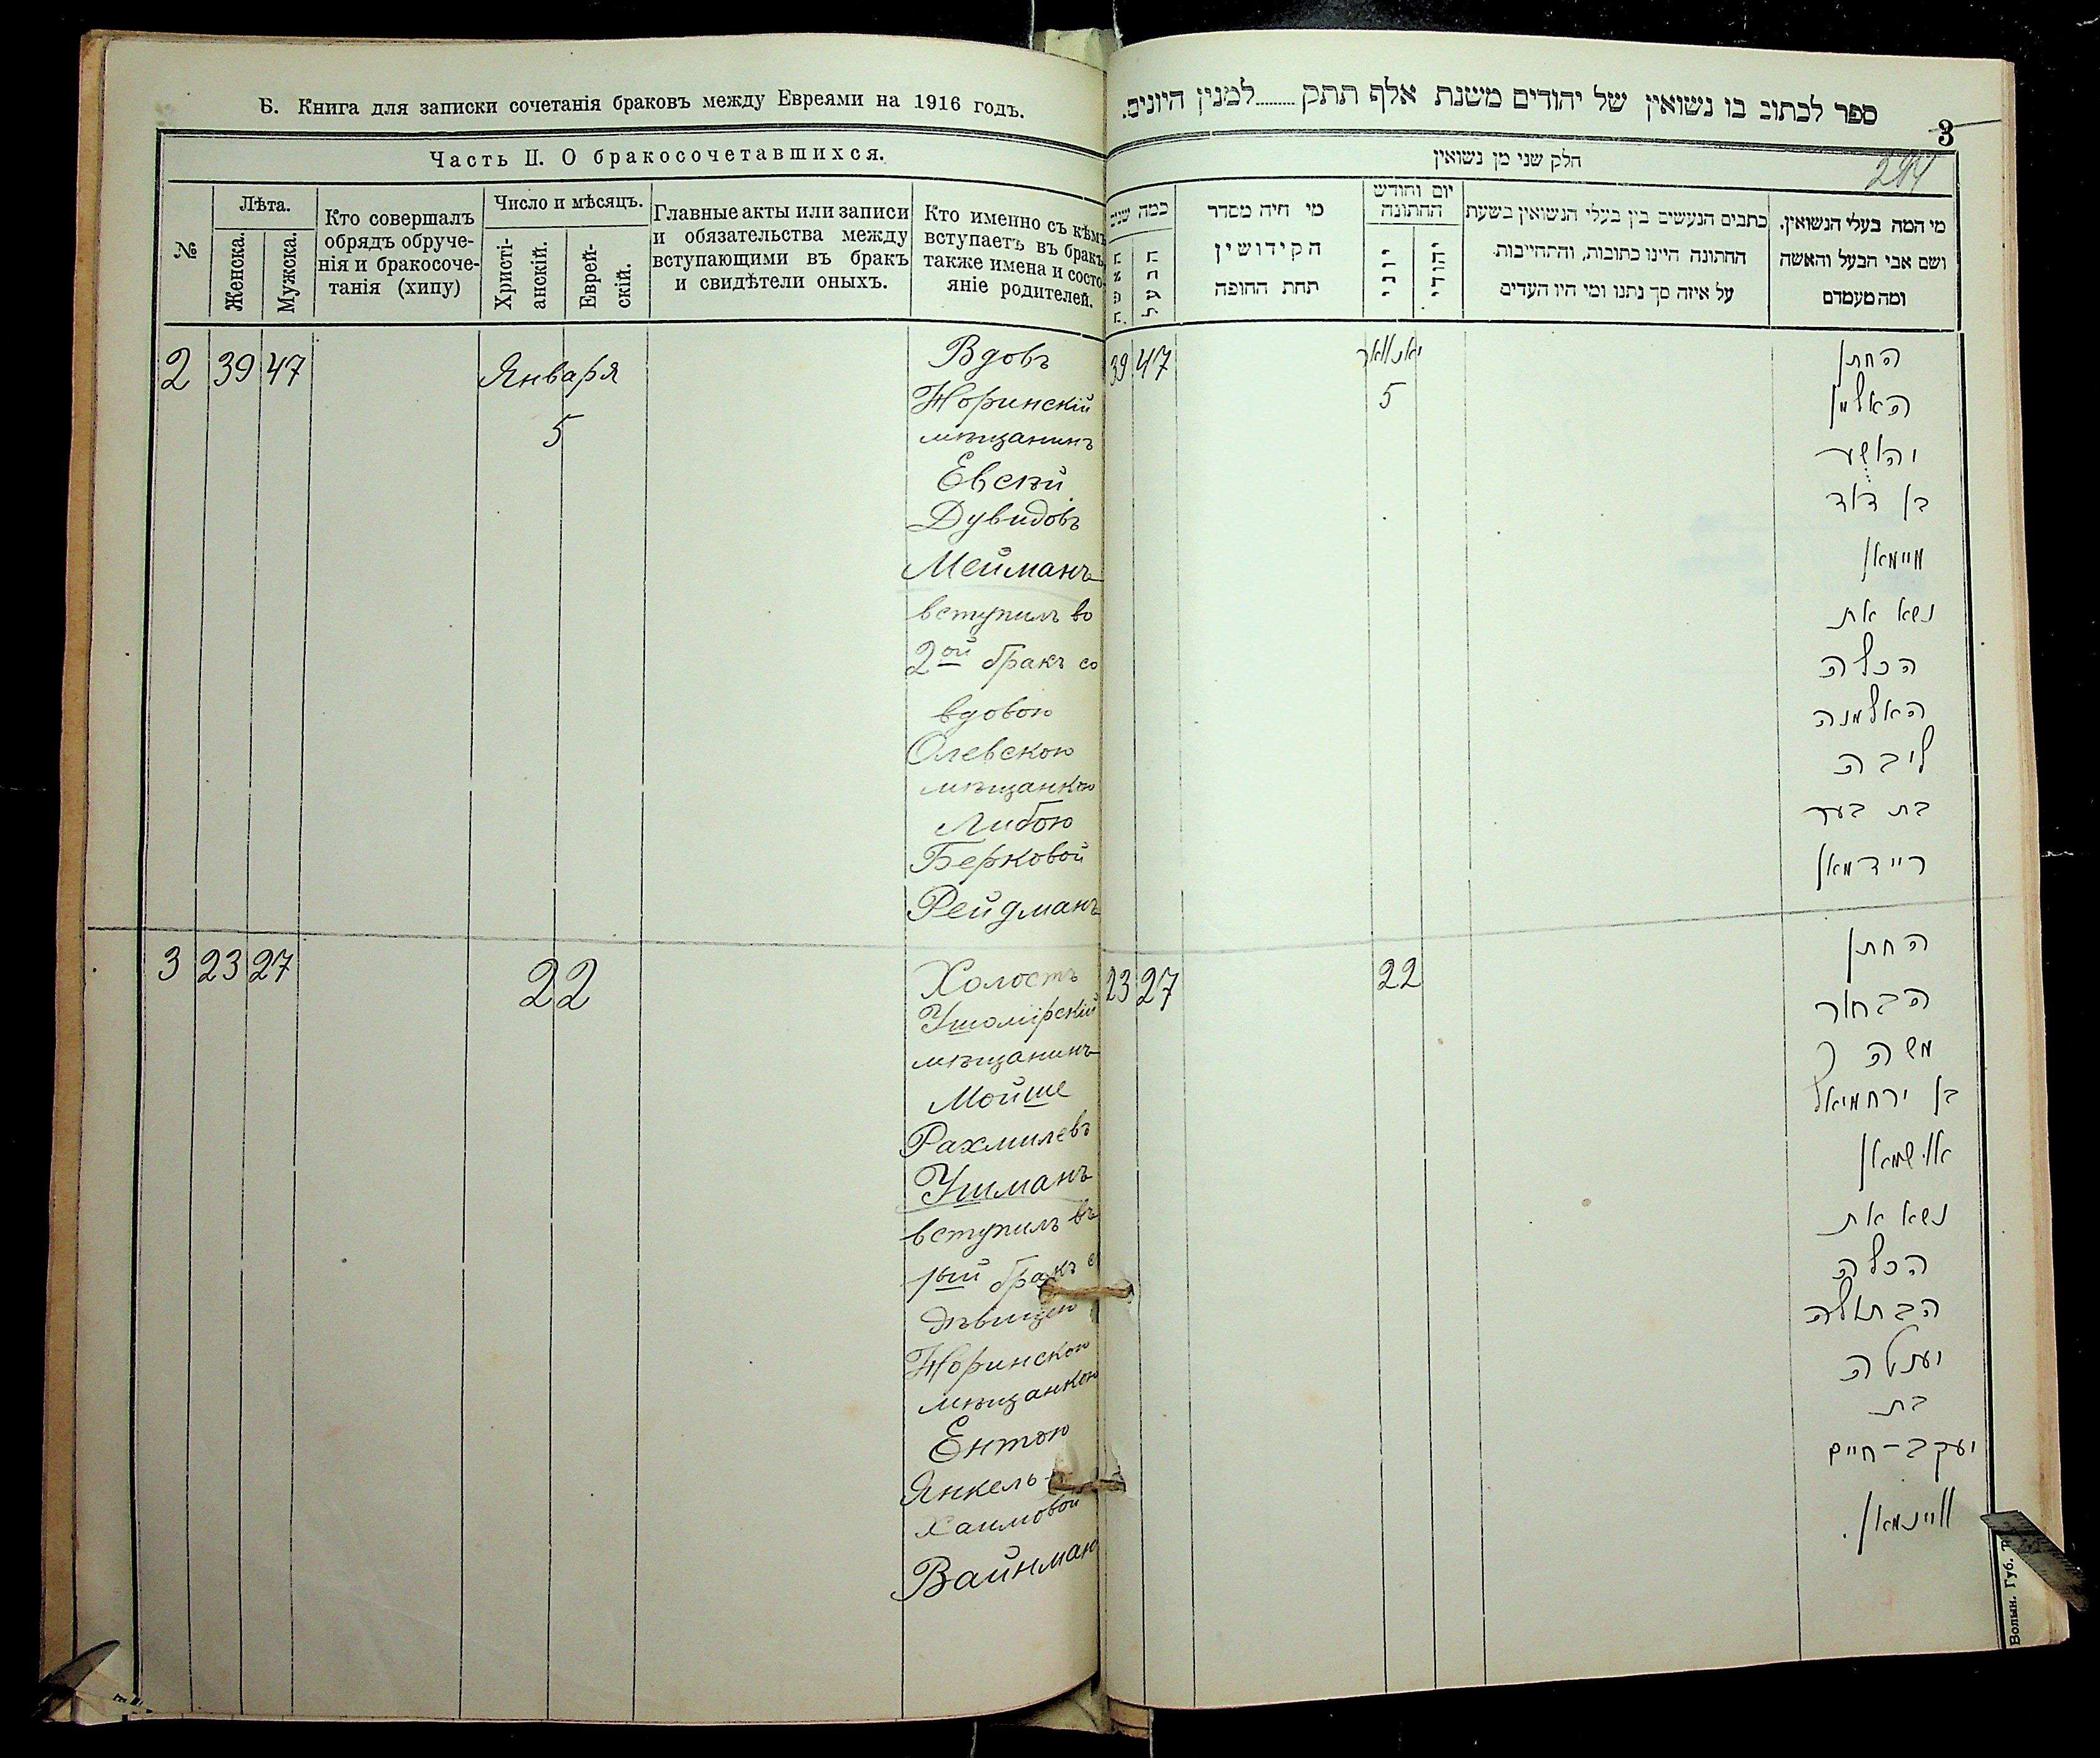 Б. Книга для записки сочетанія браковъ между Евреями на 1916 годъ.
Часть II. О бракосочетавшихся.
№
Лѣта.
Женска.
Мужска.
Кто совершалъ
обрядъ обруче-
нія и бракосоче-
танія (хипу)
Число и мѣсяцъ.
Христі-
анскій.
Еврей-
скій.
Главные акты или записи
и обязательства между
вступающими въ бракъ
и свидѣтели оныхъ.
Кто именно съ кѣмъ
вступаетъ въ бракъ,
также имена и состо-
яніе родителей.
2 39 47 Января
5
Вдовъ
Норинскій
мѣщанинъ
Евсѣй
Дувидовъ
Мейманъ
вступилъ во
2ой бракъ со
вдовою
Олевскою
мѣщанкою
Либою
Берковой
Рейдманъ
3 23 27 22
Холостъ
Ушомірскій
мѣщанинъ
Мойше
Рахмилевъ
Ушманъ
вступилъ въ
1ый бракъ с
дѣвицею
Норинскою
мѣщанкою
Ентою
Янкель-
Хаимовой
Вайнман
ספר לכתוב בו נשואין של יהודים משנת אלף תתק.........למנין היונים.
3
חלק שני מן נשואין
כמה שנים
האשה.
הבעל
מי היה מסדר
הקידושין
תחת החופה
יום וחודש
החתונה
יוני
יהודי
כתבים הנעשים בין בעלי הנשואין בשעת
החתונה היינו כתובות, והתחייבות
על איזה סך נתנו ומי היו העדים
מי המה בעלי הנשואין,
ושם אבי הבעל והאשה
ומה מעמדם
39 47 יאנוואר
5
החתן
האלמן
והושע
בן דוד
מיימאן
נשא את
הכלה
האלמנה
ליבה
בת בער
ריידמאן
23 27 22
החתן
הבחור
משה
בן ירחמיאל
אושמאן
נשא את
הכלה
הבתולה
יענטה
בת
יעקב-חיים
וויינמאן.
Волын. Губ.